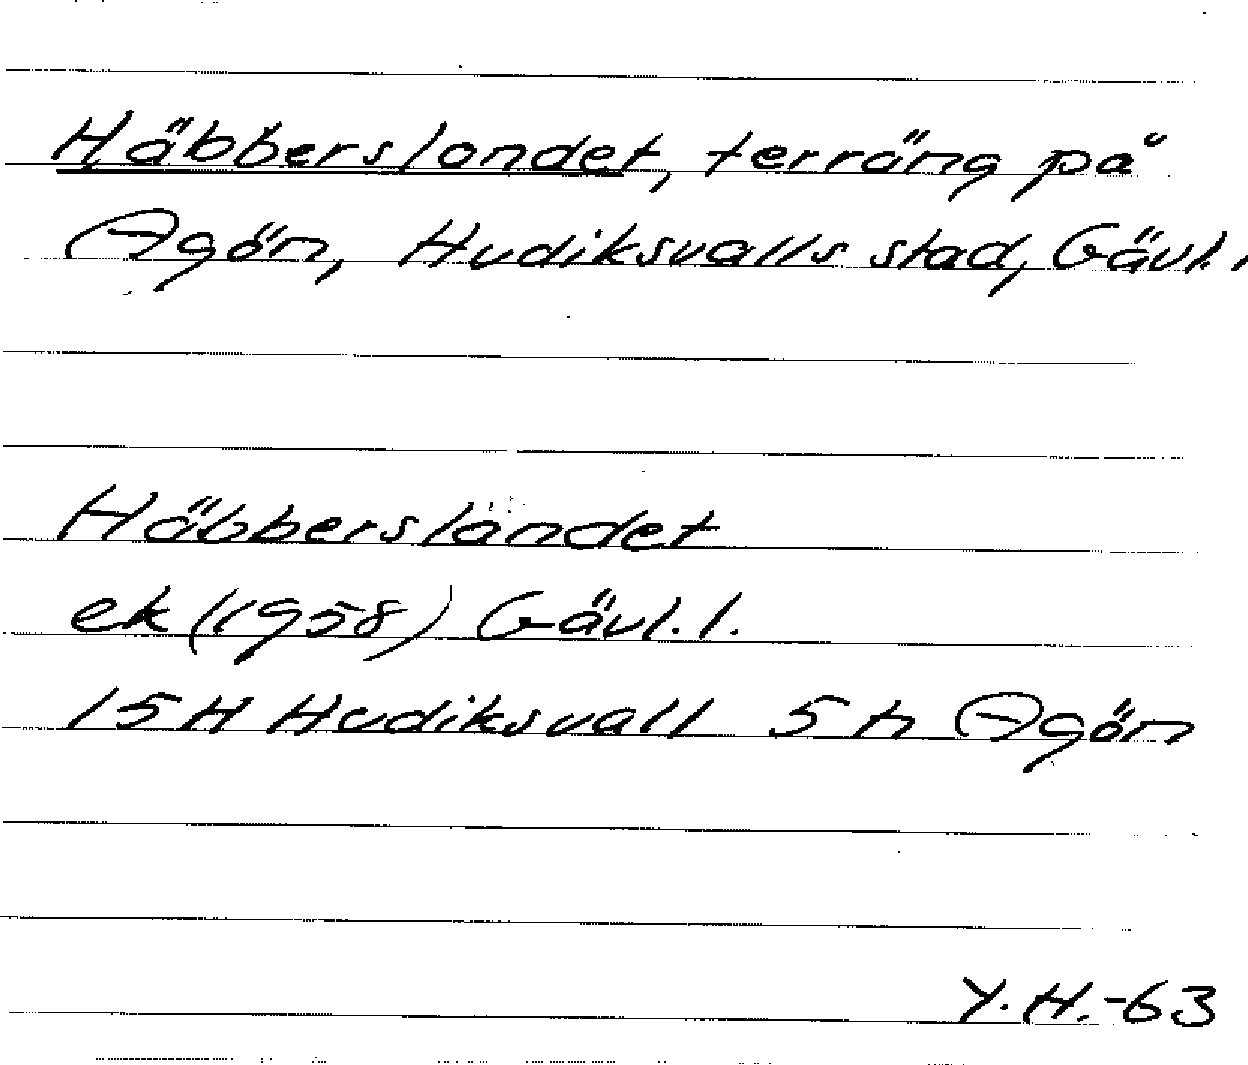 Häbberslandet, terräng på
Agön, Hudiksvalls stad, Gävl. l
Häbberslandet
ek (1958) Gävl. l.
15H Hudiksvall 5 h Agön
Y.H.-63